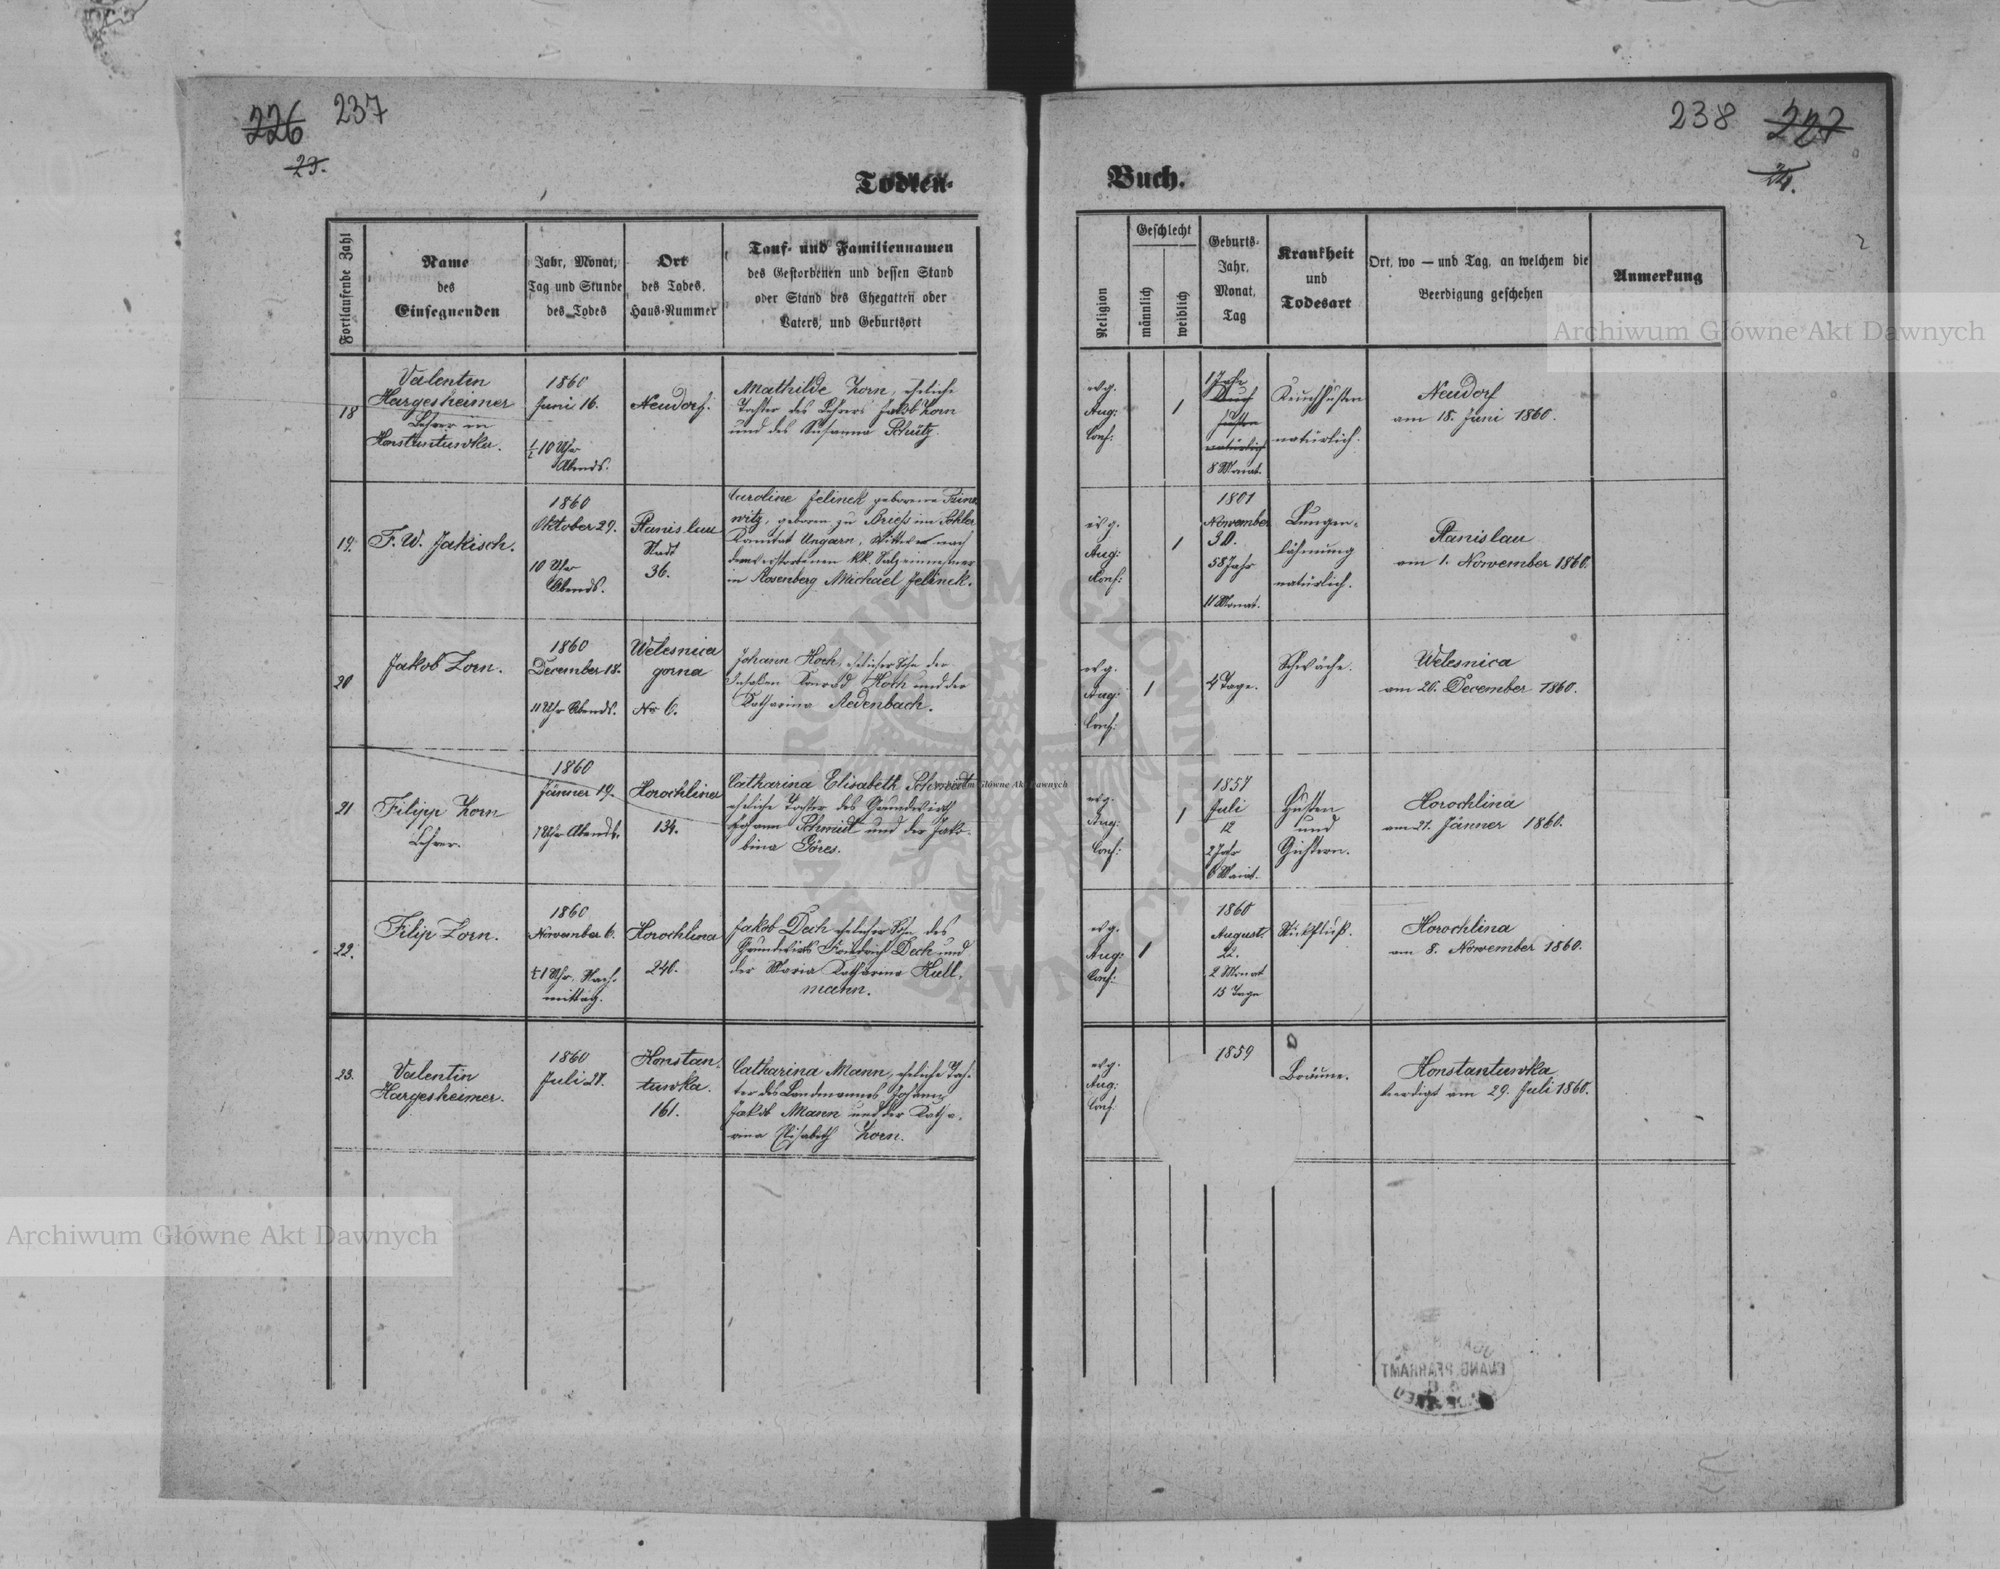 226 237
23.
Todten-
Fortlaufende Zahl
Name
des
Einsegnenden
Jahr, Monat,
Tag und Stunde
des Todes
Ort
des Todes,
Haus-Nummer
Tauf- und Familiennamen
des Gestorbenen und dessen Stand
oder Stand des Ehegatten oder
Vaters, und Geburtsort
18
Valentin
Hargesheimer
Lehrer in
Konstantuwka.
1860
Juni 16.
½10 Uhr
Abends.
Neudorf.
Mathilde Zorn, eheliche
Tochter des Lehrers Jakob Zorn
und des Susanna Schütz.
19.
F. W. Jakisch.
1860
Oktober 29.
10 Uhr
Abends.
Stanislau
Stadt
36.
Caroline Jelinek geborene
geboren zu Briess im Sohler
Komitat Ungarn, Witwe nach
dem verstorbenen kk.
in Rosenberg Michael Jelinek.
20
Jakob Zorn.
1860
December 18.
11 Uhr Abends.
Welesnica
gorna
No 6.
Johann Koch, ehelicher Sohn der
Insassen Konrad Koch und der
Katharina Redenbach.
21
Filipp Zorn
Lehrer.
1860
Jänner 19.
7 Uhr Abends.
Horochlina
134.
Catharina Elisabeth Schmidt
eheliche Tochter des Grundwirth
Johann Schmidt und der Jako-
bina Göres.
22.
Filip Zorn.
1860
November 6.
½1 Uhr Nach-
mittag.
Horochlina
240.
Jakob Dech ehelicher Sohn des
Grundwirts Friedrich Dech und
der Maria Katharina Kull-
mann.
23.
Valentin
Hargesheimer.
1860
Juli 27.
Konstan-
tuwka.
161.
Catharina Mann, eheliche Toch-
ter des Landmannes Johann
Jakob Mann und der Katha-
rina Elisabeth Zorn.
238 227
24.
Buch.
Religion
Geschlecht
männlich
weiblich
Geburts-
Jahr,
Monat,
Tag
Krankheit
und
Todesart
Ort, wo — und Tag, an welchem die
Beerdigung geschehen
Anmerkung
evg.
Aug:
Conf:
1
1 Jahr
natürlich
8 Monat.
Keuchhusten
natürlich.
Neudorf
am 18. Juni 1860.
evg.
Aug:
Konf:
1
1801
November
30.
58 Jahr
11 Monat.
Lungen-
lähmung
natürlich.
Stanislau
am 1. November 1860.
evg.
Aug:
Conf:
1
4 Tage.
Schwäche.
Welesnica
am 20. December 1860.
evg.
Aug:
Conf:
1
1857
Juli
12
2 Jahr
6 Monat.
Husten
und
Horochlina
am 21. Jänner 1860.
evg.
Aug:
Conf:
1
1860
August
22.
2 Monat
15 Tage
Stickfluß.
Horochlina
am 8. November 1860.
evg.
Aug:
Conf
1859
Bräune.
Konstantuwka
beerdigt am 29. Juli 1860.
EVANG. PFARRAMT
Archiwum Główne Akt Dawnych
Archiwum Główne Akt Dawnych
ARCHIWUM GŁÓWNE AKT DAWNYCH